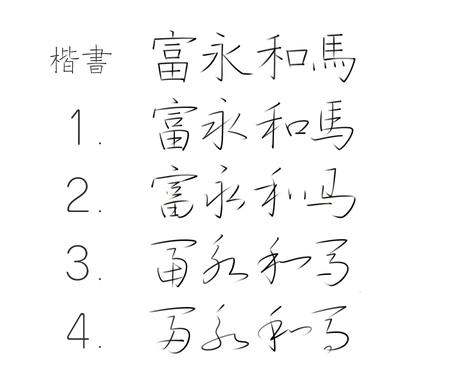 楷書 富永和馬
1. 富永和馬
2. 富永和馬
3. 富永和馬
4. 富永和馬